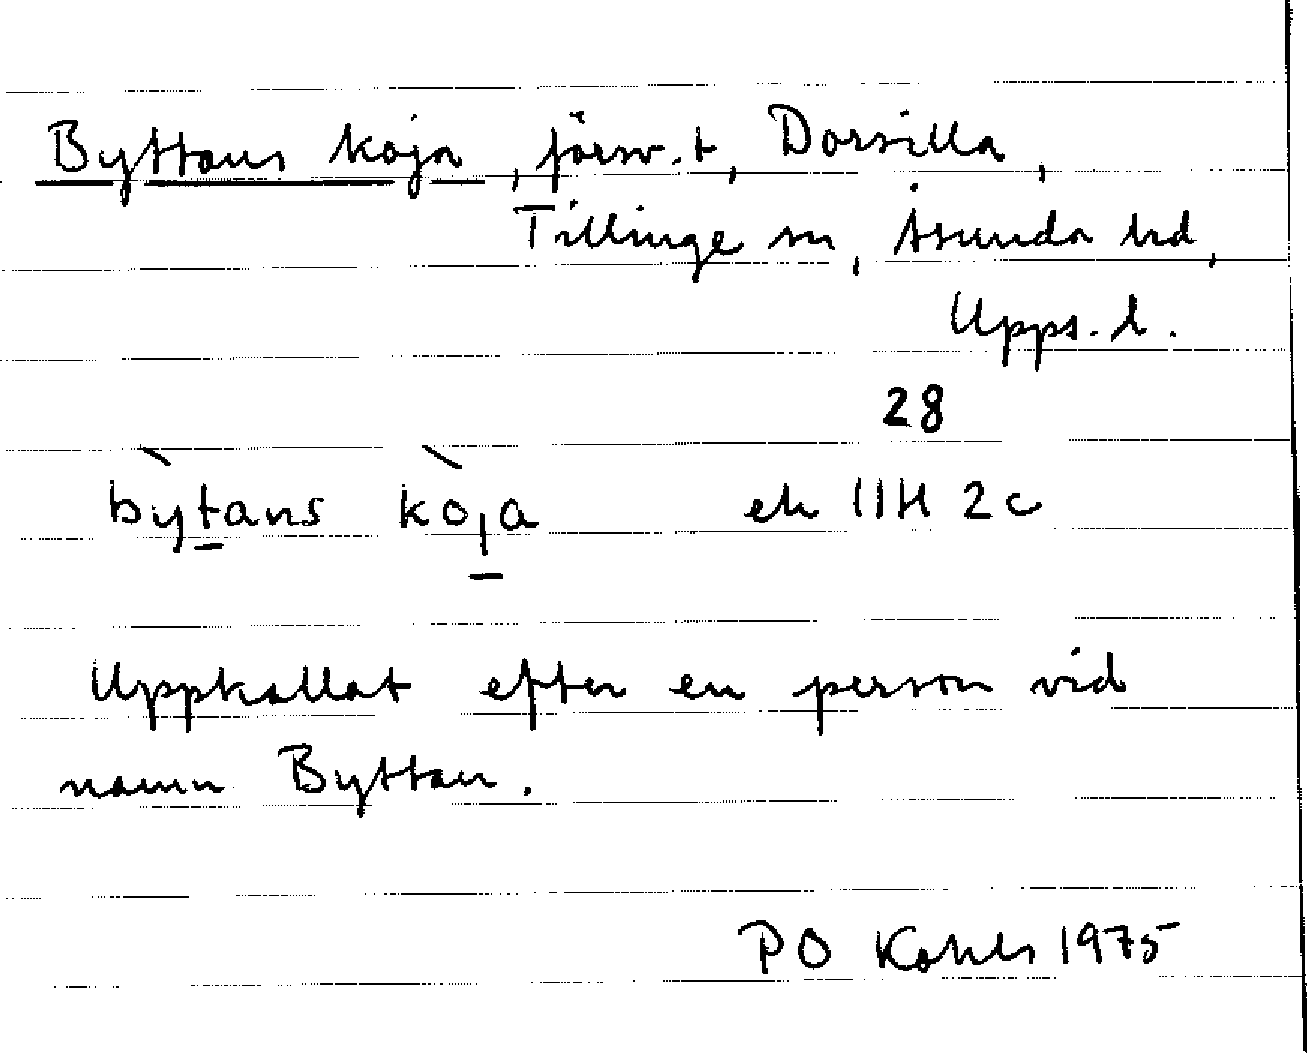 Byttans koja, försv. t, Dorsilla,
Tillinge sn, Åsunda hd,
Upps. l.
28
bỳtans kòja ek 11H 2c
Uppkallat efter en person vid
namn Byttan.
PO 1975